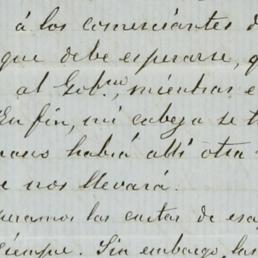 á los comerciantes d
que debe esperarse, q
al Gob.no, mientras e
En fin, mi cabeza se t
habrá allí otra
nos llevará.
peramos las cartas de esa
siempre. Sin embargo, las